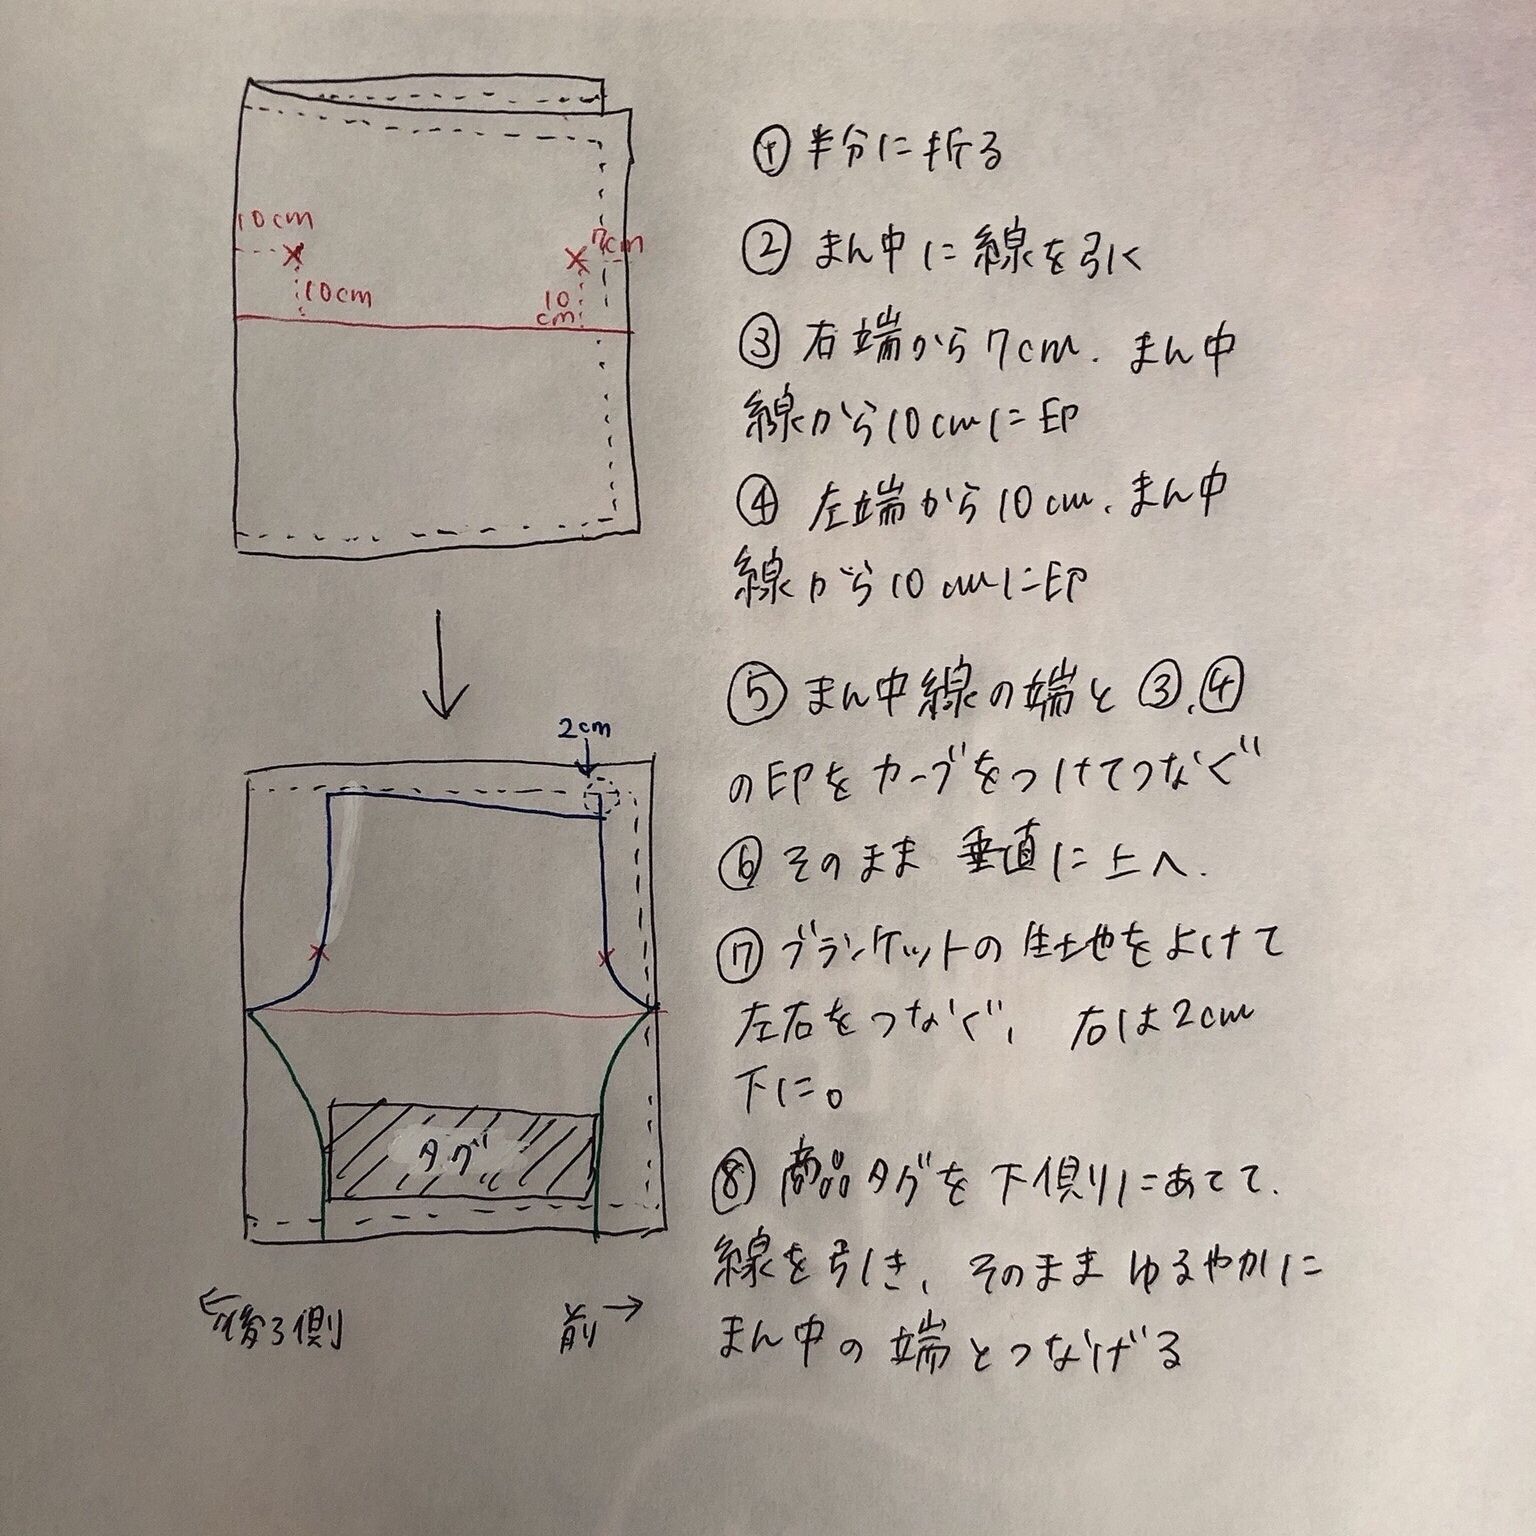 10cm
7cm
10cm
10
cm
①半分に折る
②まん中に線を引く
③右端から7cm、まん中
線から10cmに印
④左端から10cm、まん中
線から10cmに印
⑤まん中線の端と③、④
の印をカーブをつけてつなぐ
⑥そのまま垂直に上へ、
⑦ブランケットの生地をよけて
左右をつなぐ、右は2cm
下に。
⑧商品タグを下側にあてて、
線を引き、そのままゆるやかに
まん中の端とつなげる
2cm
タグ
←後ろ側
前→